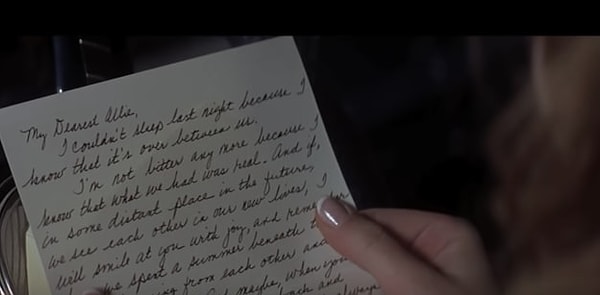 My Dearest Allie,
I couldn't sleep last night because I
know that it's over between us.
I'm not bitter any more because I
know that what we had was real. And if,
in some distant place in the future,
we see each other in our new lives, I
will smile at you with joy, and remember
we spent a summer beneath
from each other and
maybe, when you
and